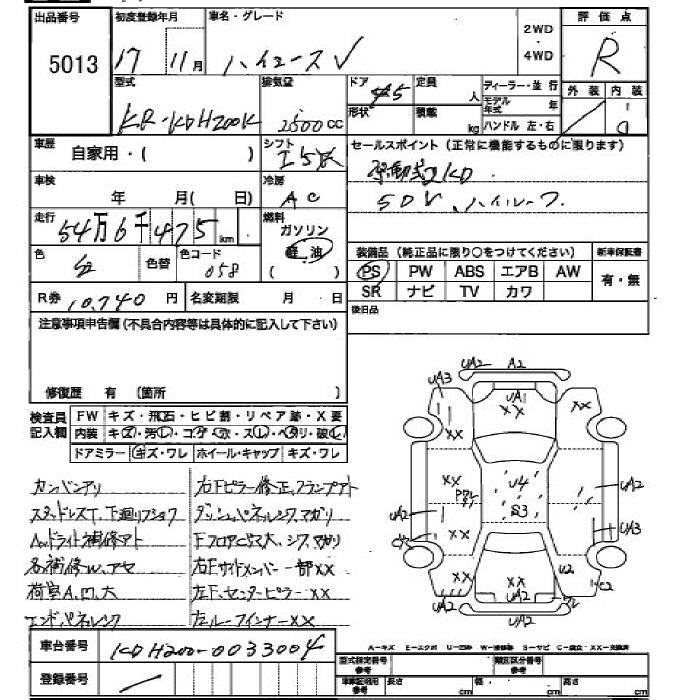 出品番号 初度登録年月 車名・グレード 2WD・4WD 評価点
5013 17年 11月 ハイエースV R
型式 排気量 ドア 定員 ディーラー・並行 外装 内装
KR-KDH200K 2500cc 5 人 モデル年式 年
形状 積載 kg ハンドル 左・右
車歴 自家用・( ) シフト I5 セールスポイント(正常に機能するものに限ります)
車検 年 月( 日) 冷房 AC
5DV.ハイルーフ
走行 54万6千475km 燃料 ガソリン 軽油
装備品(純正品に限り○をつけてください) 新車保証書
色 色替 色コード 058
PS PW ABS エアB AW 有・無
SR ナビ TV カワ
R券 10,740円 名変期限 月 日
後日品
注意事項申告欄(不具合内容等は具体的に記入して下さい)
修復歴 有 (箇所 )
検査員記入欄 FW キズ・飛石・ヒビ割・リペア跡・X要
内装 キズ・汚レ・コゲ・穴・スレ・ヘタリ・破レ
ドアミラー キズ・ワレ ホイール・キャップ キズ・ワレ
カンバンアリ 右Fピラー修正、フランプアト
スタッドレスT、下廻リフショク ダッシュパネルシワ、マガリ
ヘッドライト補修アト FフロアーピスA大、シワ、マガリ
各補修W、アセ 右Fサイドメンバー一部XX
荷室A、凹大 左F、センターピラーXX
エンドパネルシワ 左ルーフインナーXX
UA2 A2 UA2
UA3 UA1 XX XX
XX
XX U4
S3
UA2 UA2
UA3
XX U2
XX XX C2
UA2 UA2 UA2
車台番号 KDH200-0033004
A-キズ E-エクボ U-凹み W-補修跡 S-サビ C-腐食 XX-交換済
登録番号
型式指定番号 参考 類別区分番号 参考
車庫証明用 参考 長さ cm 幅 cm 高さ cm